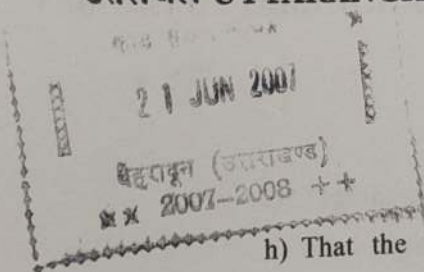 21 JUN 2007
देहरादून (उत्तराखण्ड)
2007-2008
h) That the